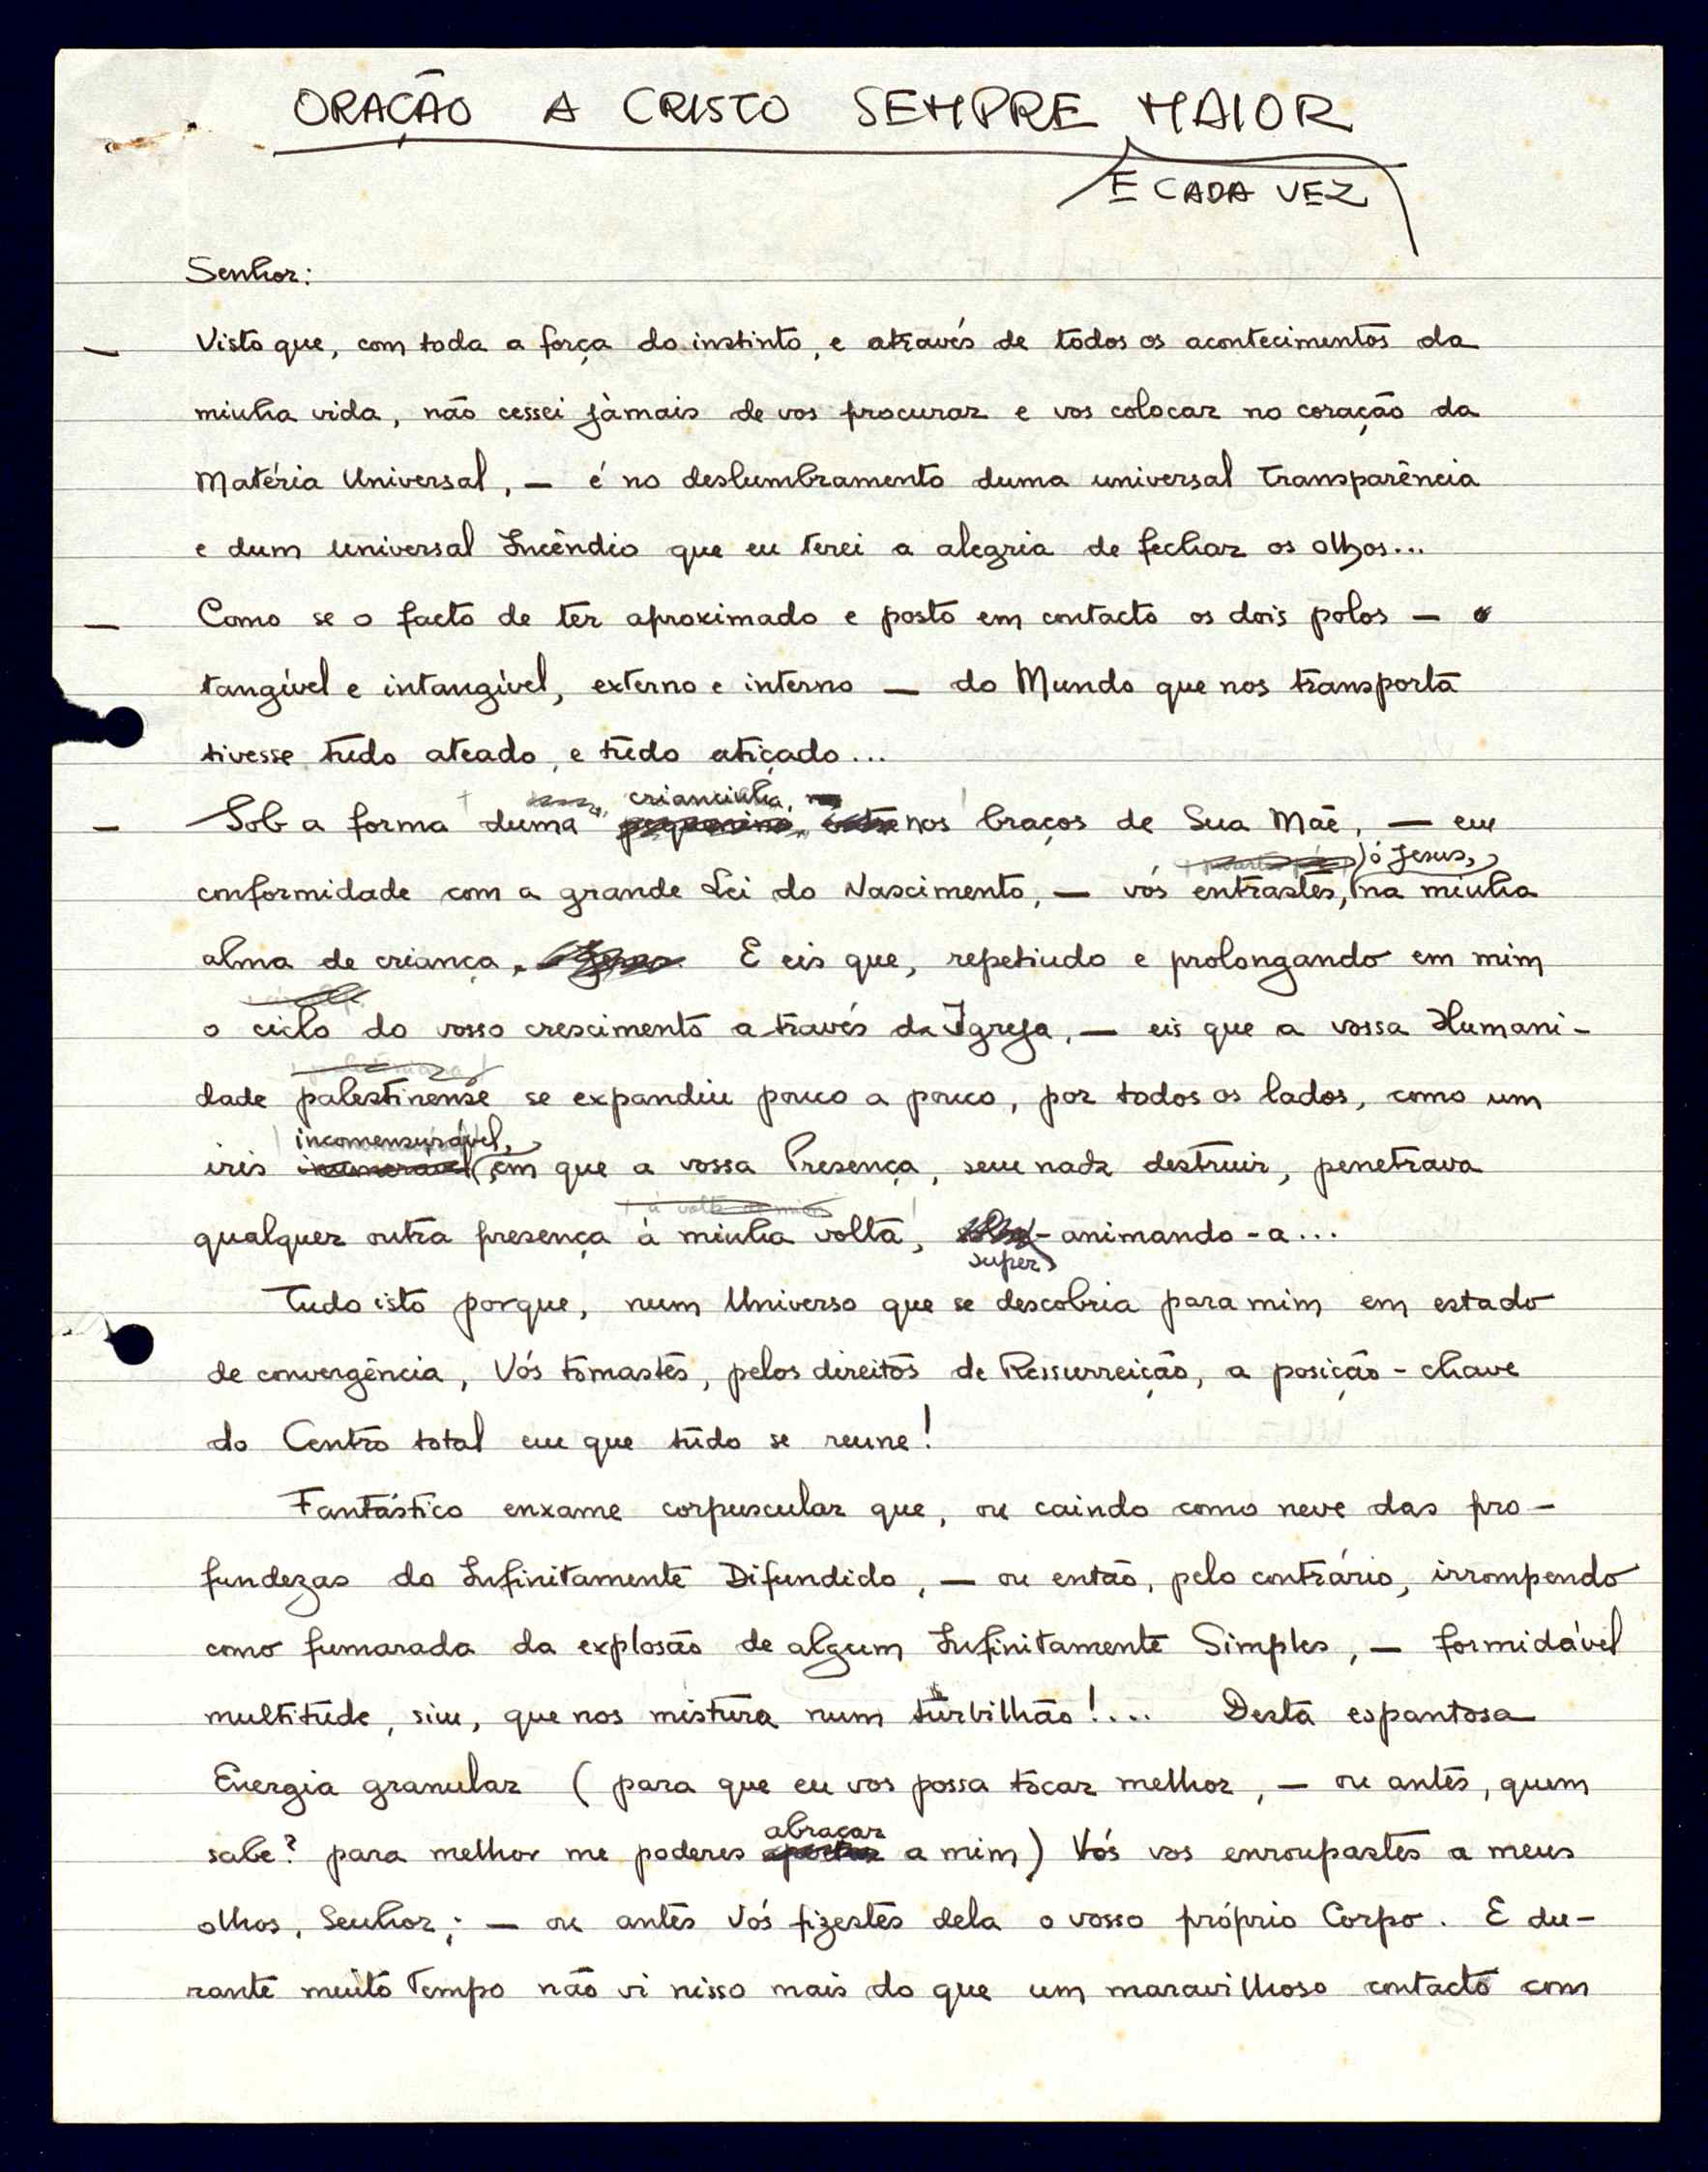 ORAÇÃO A CRISTO SEMPRE MAIOR
E CADA VEZ
Senhor:
— Visto que, com toda a força do instinto, e através de todos os acontecimentos da
minha vida, não cessei jàmais de vos procurar e vos colocar no coração da
Matéria Universal, — é no deslumbramento duma universal Transparência
e dum universal Incêndio que eu terei a alegria de fechar os olhos...
— Como se o facto de ter aproximado e posto em contacto os dois polos — o
tangível e intangível, externo e interno — do Mundo que nos transporta
tivesse tudo ateado, e tudo atiçado...
criancinha,
— Sob a forma duma nos braços de Sua Mãe, — em
ó Jesus,
conformidade com a grande Lei do Nascimento, — vós entrastes, na minha
alma de criança. E eis que, repetindo e prolongando em mim
o ciclo do vosso crescimento através da Igreja, — eis que a vossa Humani-
dade palestinense se expandiu pouco a pouco, por todos os lados, como um
incomensurável,
iris em que a vossa Presença, sem nada destruir, penetrava
à volta de mim
qualquer outra presença à minha volta, -animando-a...
super
Tudo isto porque, num Universo que se descobria para mim em estado
de convergência, Vós tomastes, pelos direitos de Ressurreição, a posição-chave
do Centro total em que tudo se reune!
Fantástico enxame corpuscular que, ou caindo como neve das pro-
fundezas do Infinitamente Difundido, — ou então, pelo contrário, irrompendo
como fumarada da explosão de algum Infinitamente Simples, — formidável
multitude, sim, que nos mistura num turbilhão!... Desta espantosa
Energia granular (para que eu vos possa tocar melhor, — ou antes, quem
abraçar
sabe? para melhor me poderes a mim) Vós vos enroupastes a meus
olhos, Senhor; — ou antes Vós fizestes dela o vosso próprio Corpo. E du-
rante muito Tempo não vi nisso mais do que um maravilhoso contacto com